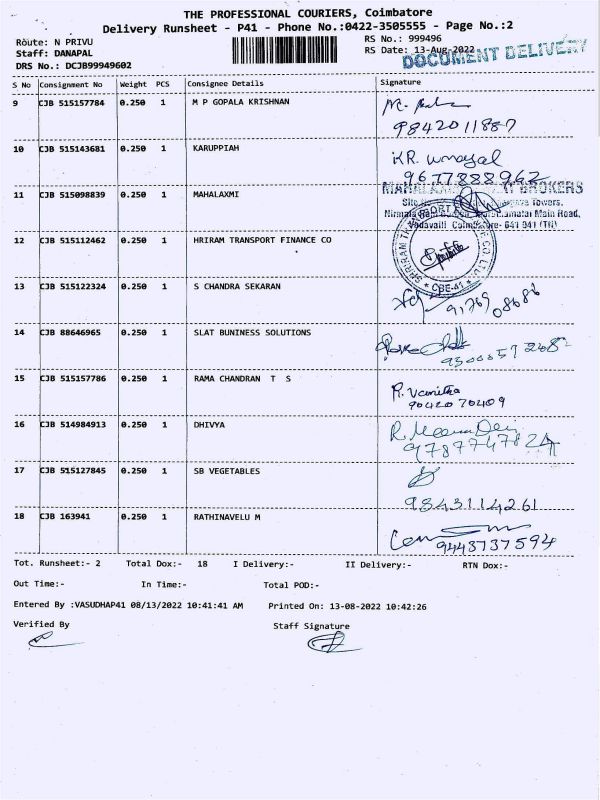 THE PROFESSIONAL COURIERS, Coimbatore
Delivery Runsheet - P41 - Phone No.:0422-3505555 - Page No.:2
Route: N PRIVU
RS No.: 999496
Staff: DANAPAL
RS Date: 13-Aug-2022
DOCUMENT DELIVERY
DRS No.: DCJB99949602
S No Consignment No Weight PCS Consignee Details Signature
9 CJB 515157784 0.250 1 M P GOPALA KRISHNAN
9842011887
10 CJB 515143681 0.250 1 KARUPPIAH KR. unayal
9677888962
11 CJB 515098839 0.250 1 MAHALAXMI
BROKERS
Towers,
Main Road,
Vadavalli Coimbatore- 641 041 (TN)
12 CJB 515112462 0.250 1 HRIRAM TRANSPORT FINANCE CO
SHRIRAM CO. LTD. * CBE-41 *
13 CJB 515122324 0.250 1 S CHANDRA SEKARAN
91769 08686
14 CJB 88646965 0.250 1 SLAT BUNINESS SOLUTIONS
15 CJB 515157786 0.250 1 RAMA CHANDRAN T S R. Vanitha
9042070409
16 CJB 514984913 0.250 1 DHIVYA R. Meena Devi
17 CJB 515127845 0.250 1 SB VEGETABLES
9843114261
18 CJB 163941 0.250 1 RATHINAVELU M
9443737594
Tot. Runsheet:- 2 Total Dox:- 18 I Delivery:- II Delivery:- RTN Dox:-
Out Time:- In Time:- Total POD:-
Entered By :VASUDHAP41 08/13/2022 10:41:41 AM Printed On: 13-08-2022 10:42:26
Verified By Staff Signature